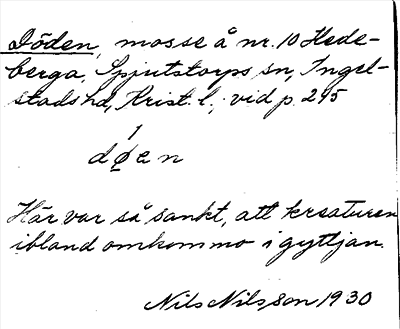 Döden, mosse å nr. 10 Hede-
berga, Spjutstorps sn, Ingel-
stads hd, Krist. l., vid p. 245
döen
Här var så sankt, att kreaturen
ibland omkommo i gyttjan.
Nils Nilsson 1930